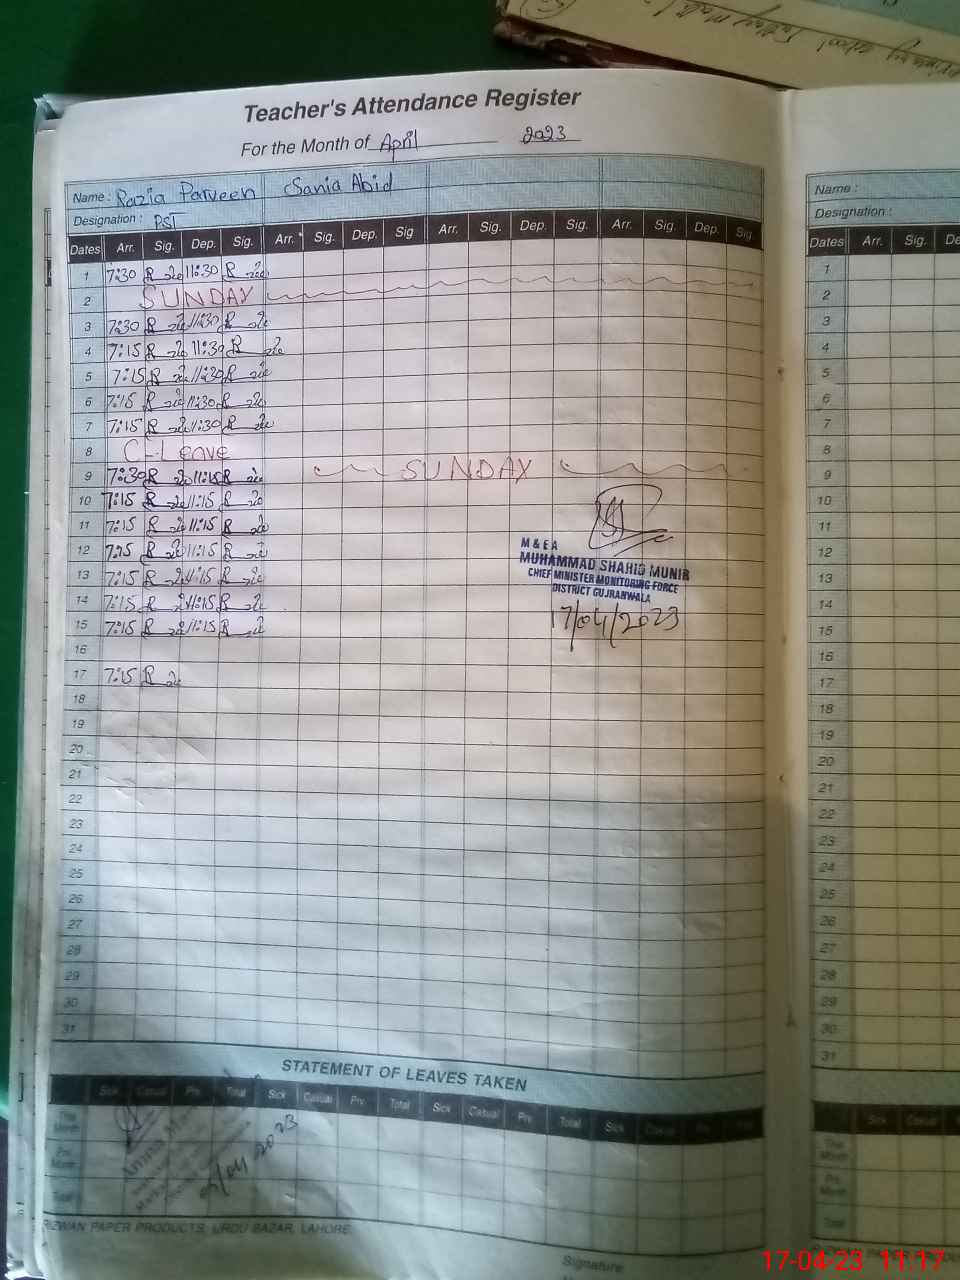 Teacher's Attendance Register
For the Month of April 2023
Name : Razia Parveen Sania Abid
Designation : PST
Dates Arr. Sig. Dep. Sig. Arr. Sig. Dep. Sig Arr. Sig. Dep. Sig. Arr. Sig. Dep. Sig.
1 7:30 R 11:30 R
2 SUNDAY
3 7:30 R 11:30 R
4 7:15 R 11:30 R
5 7:15 R 11:30 R
6 7:15 R 11:30 R
7 7:15 R 11:30 R
8 C-Leave
9 7:30 R 11:15 R SUNDAY
10 7:15 R 11:15 R
11 7:15 R 11:15 R
12 7:15 R 11:15 R
13 7:15 R 11:15 R
14 7:15 R 11:15 R
15 7:15 R 11:15 R
16
17 7:15 R
18
19
20
21
22
23
24
25
26
27
28
29
30
31
M & E A
MUHAMMAD SHAHID MUNIR
CHIEF MINISTER MONITORING FORCE
DISTRICT GUJRANWALA
17/04/2023
STATEMENT OF LEAVES TAKEN
Sick Casual Prv. Total Sick Casual Prv. Total Sick Casual Prv. Total Sick Casual Prv.
This Month
Prv. Month
Total
Amna
/04/2023
RIZWAN PAPER PRODUCTS, URDU BAZAR, LAHORE
Signature
Name :
Designation :
Dates Arr. Sig. De
1
2
3
4
5
6
7
8
9
10
11
12
13
14
15
16
17
18
19
20
21
22
23
24
25
26
27
28
29
30
31
Sick Casual
This Month
Prv. Month
Total
17-04-23 11:17